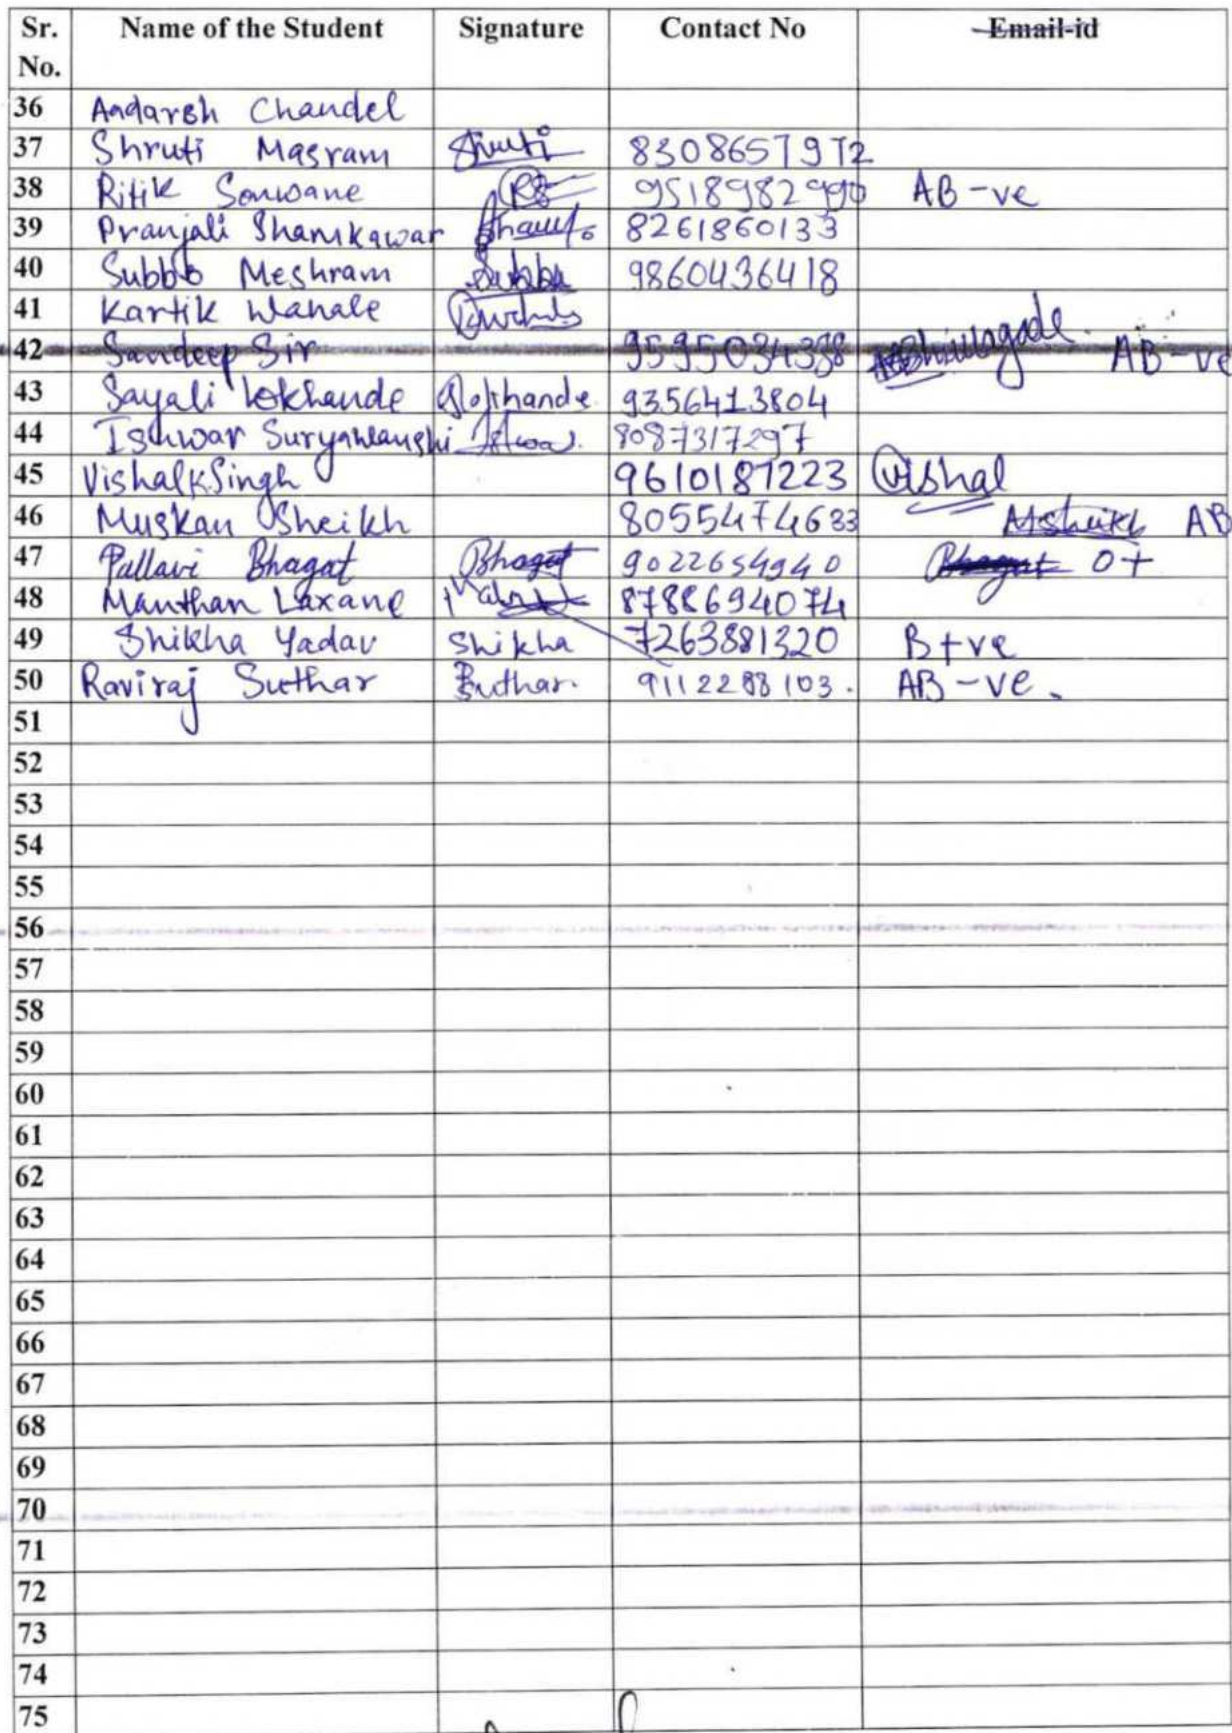 Sr. No. Name of the Student Signature Contact No Email-id
36 Aadarsh Chandel
37 Shruti Masram Shruti 8308657972
38 Ritik Sonwane RS 9518982990 AB-ve
39 Pranjali Shamkawar 8261860133
40 Subbo Meshram Subbo 9860436418
41 Kartik Wahale
42 Sandeep Sir 9595034338 AB-ve
43 Sayali Lokhande Lokhande 9356413804
44 Ishwar Suryawanshi 8087317297
45 Vishal K Singh 9610187223 Vishal
46 Muskan Sheikh 8055474633 MSheikh AB
47 Pallavi Bhagat Bhagat 9022654940 Bhagat O+
48 Manthan Laxane 8788694074
49 Shikha Yadav Shikha 7263881320 B+ve
50 Raviraj Suthar Suthar. 9112288103. AB-ve.
51
52
53
54
55
56
57
58
59
60
61
62
63
64
65
66
67
68
69
70
71
72
73
74
75